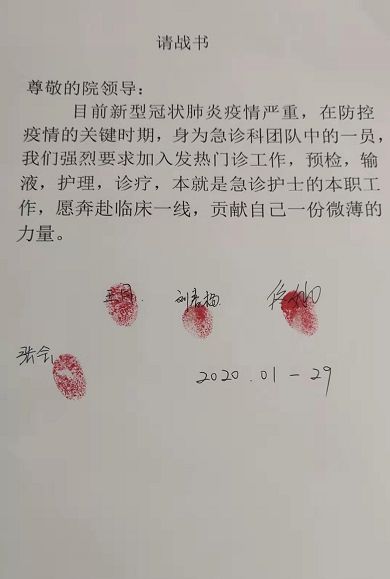 请战书
尊敬的院领导：
目前新型冠状肺炎疫情严重，在防控
疫情的关键时期，身为急诊科团队中的一员，
我们强烈要求加入发热门诊工作，预检，输
液，护理，诊疗，本就是急诊护士的本职工
作，愿奔赴临床一线，贡献自己一份微薄的
力量。
2020.01-29